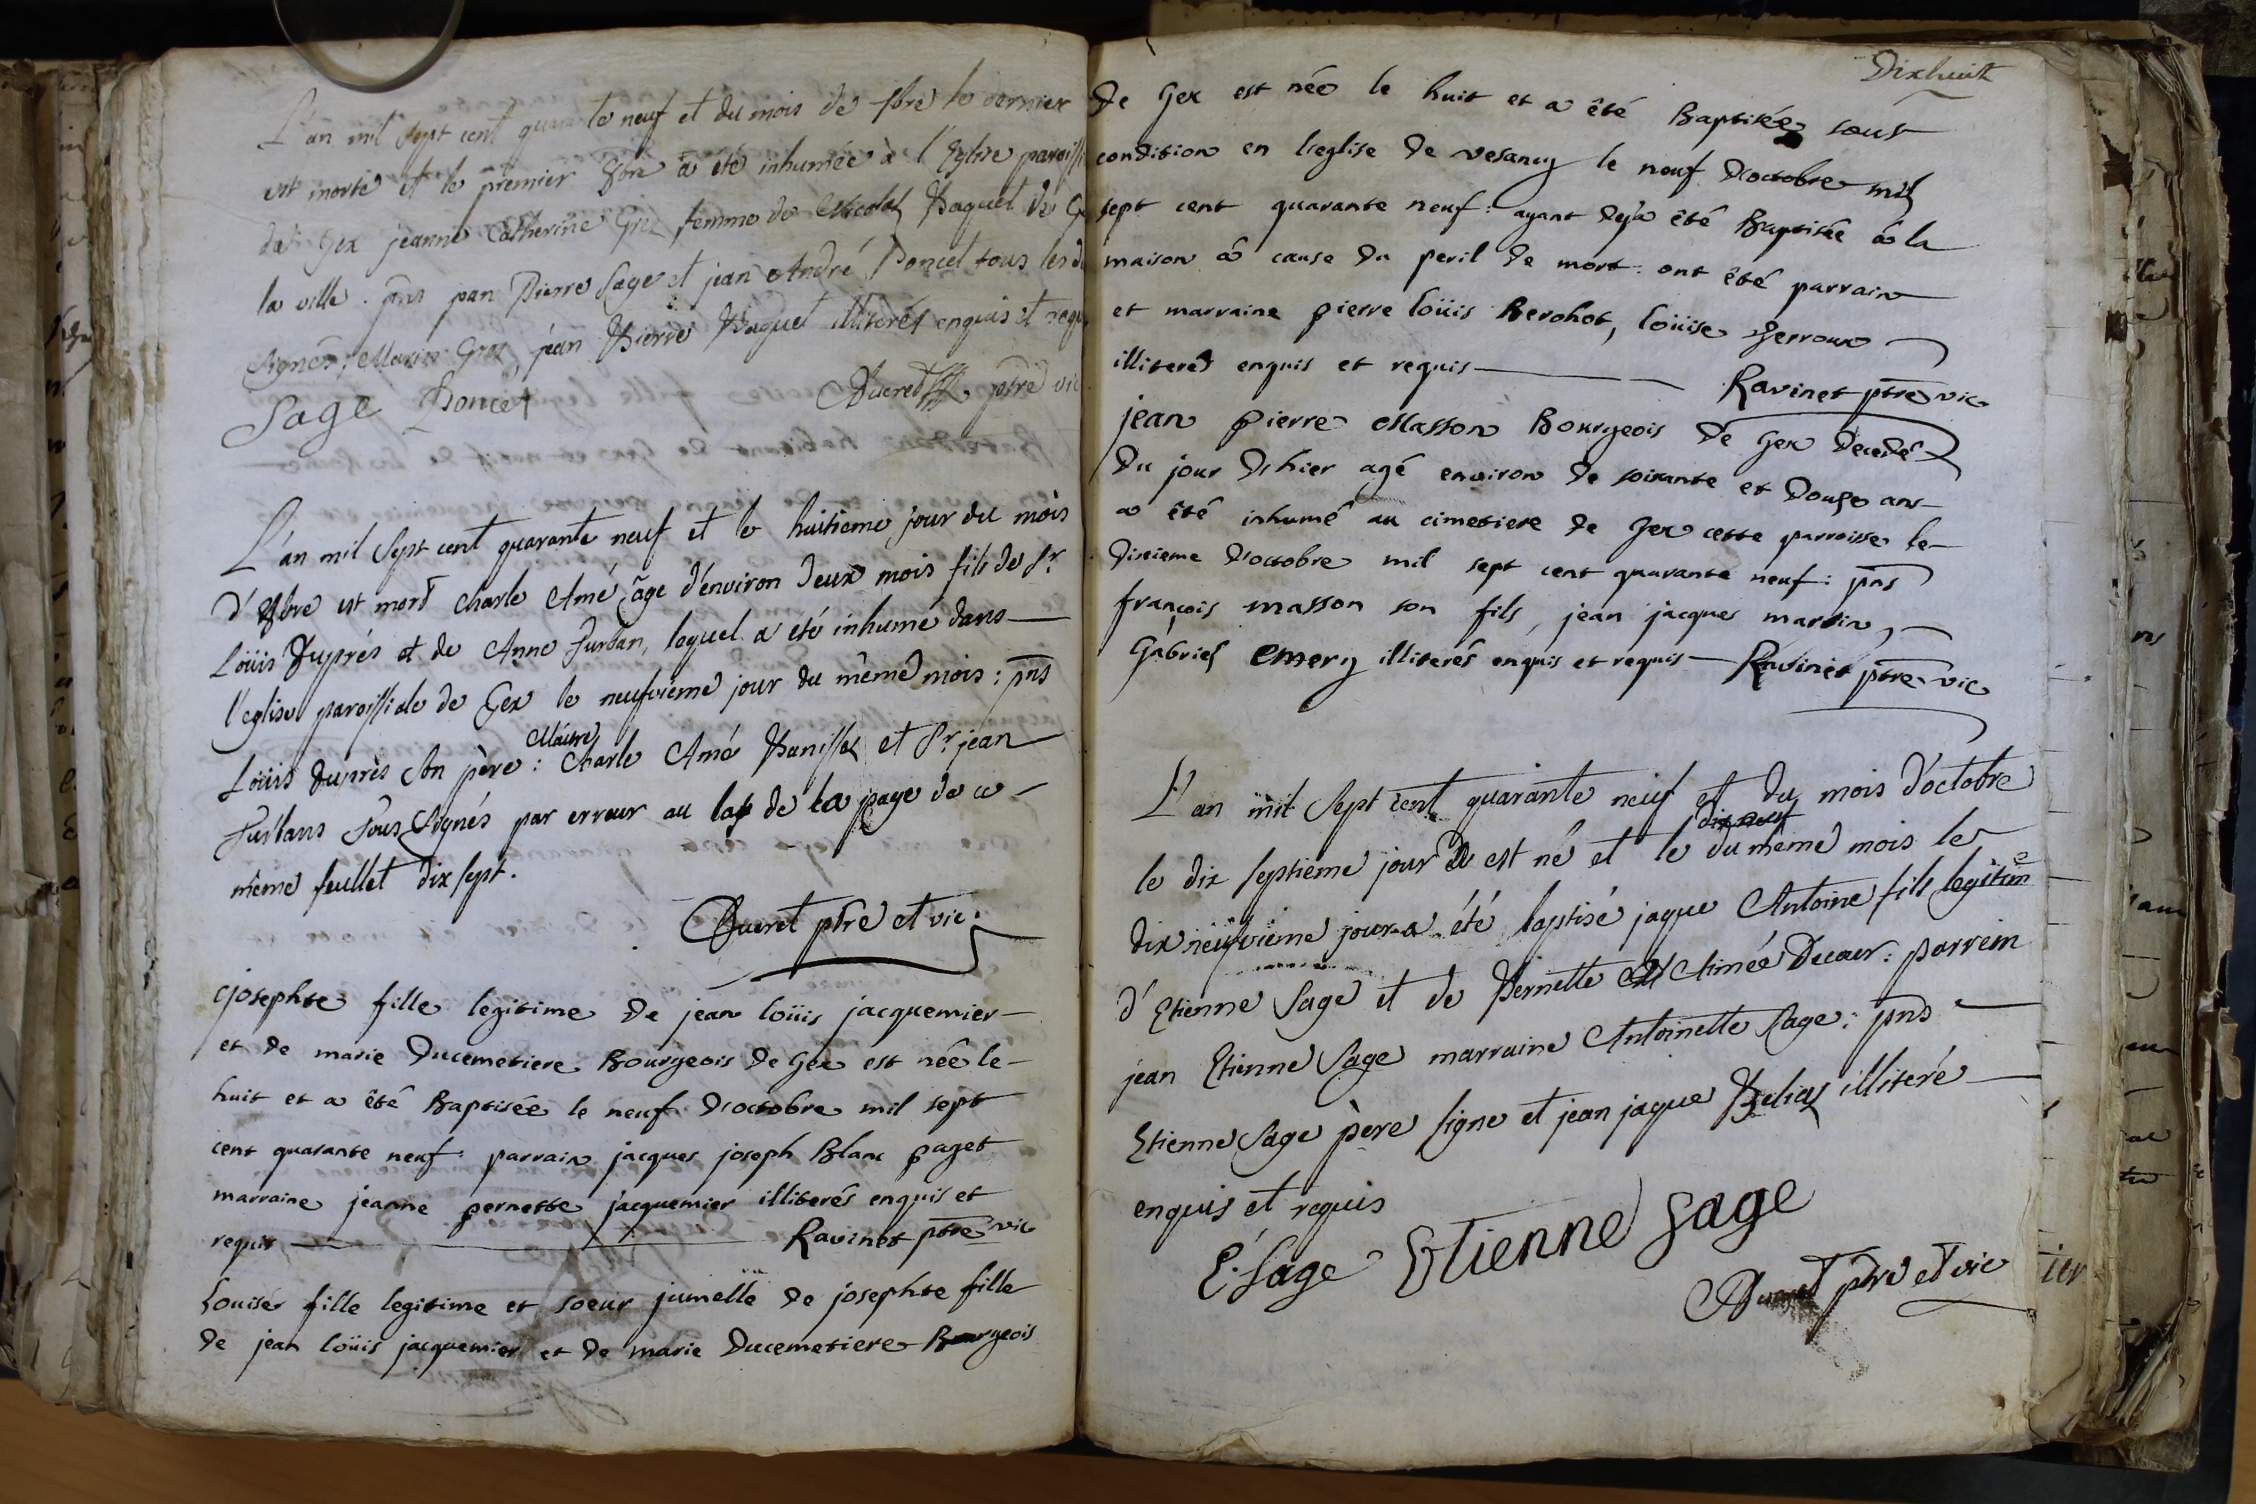 L'an mil sept cent quarante neuf et du mois de 7bre le dernier
est morte et le premier 8bre a été inhumée à l'Eglise paroissi
de Gex jeanne Catherine Grez femme de Nicolas Paquet de G
la ville. pns pan Pierre Sage et jean André Poncet tous les d
signés; Marier Grez, jean Pierre Paquet illiterés enquis et requ
Sage Poncet Ducret ptre vic
L'an mil sept cent quarante neuf et le huitieme jour du mois
d'8bre est mort charle Amé âge d'environ deux mois fils de Sr
Loüis Duprés et de Anne Furtan, lequel a été inhumé dans
l'eglise paroissiale de Gex le neufvieme jour du même mois: pns
Maitre
Loüis duprès son père: Charle Amé Panisset et Sr jean
Furtans sous signés par erreur au bas de la page de ce
même feullet dix sept.
Ducret ptre et vic.
josephte fille legitime de jean loüis jacquemier
et de marie Ducemetiere Bourgeois de Gex est née le
huit et a été Baptisée le neuf d'octobre mil sept
cent quarante neuf: parrain jacques joseph Blanc paget
marraine jeanne pernette jacquemier illiterés enquis et
requis Ravinet ptre vic
Louise fille legitime et soeur jumelle de josephte fille
de jean loüis jacquemier et de marie Ducemetiere Bourgeois
Dixhuit
de Gex est née le huit et a été Baptisée sous
condition en l'eglise de vesancy le neuf d'octobre mil
sept cent quarante neuf: ayant deja été Baptisée à la
maison à cause du peril de mort: ont été parrain
et marraine pierre loüis Berohot, loüise gerroux
illiterés enquis et requis Ravinet ptre vic
jean pierre Masson Bourgeois de Gex decedé
du jour d'hier agé environ de soixante et douze ans
a été inhumé au cimetiere de Gex cette parroisse le
dixieme d'octobre mil sept cent quarante neuf: pns
françois masson son fils, jean jacques martin,
Gabriel Emery illiterés enquis et requis Ravinet ptre vic
L'an mil sept cent quarante neuf et du mois d'octobre
dix neuf
le dix septieme jour est né et le du même mois le
dix neufvieme jour a été baptisé jaque Antoine fils legitime
d'Etienne Sage et de Pernette Aimée Decaer: parrein
jean Etienne Sage marraine Antoinette Sage: pns
Etienne Sage père signe et jean jaque Belias illiteré
enquis et requis
E. Sage Etienne Sage
Ducret ptre et vic